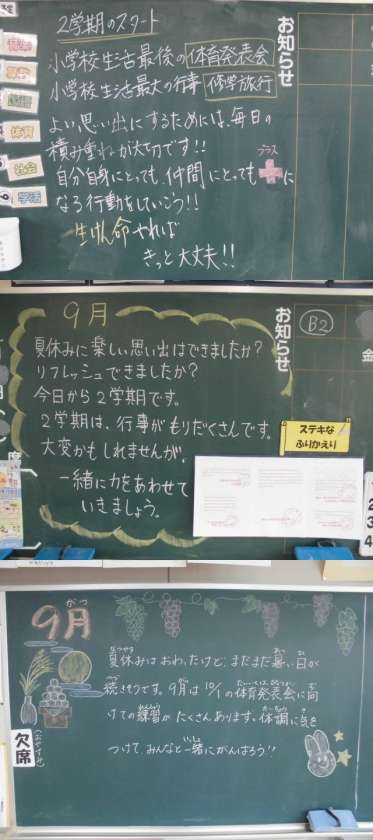 2学期のスタート
小学校生活最後の体育発表会
小学校生活最大の行事 修学旅行
よい思い出にするためには、毎日の
積み重ねが大切です!!
自分自身にとっても、仲間にとっても
プラス
に
なる行動をしていこう!!
生けん命やれば
きっと大丈夫!!
お知らせ
体育
社会
学活
9月
夏休みに楽しい思い出はできましたか?
リフレッシュできましたか?
今日から2学期です。
2学期は、行事がもりだくさんです。
大変かもしれませんが、
一緒に力をあわせて
いきましょう。
お知らせ
B2
金
ステキな
ふりかえり
1
2
3
4
席
9月
がつ
夏休みはおわったけど、まだまだ暑い日が
続きそうです。9月は10/1の体育発表会に向
けての練習がたくさんあります。体調に気を
つけて、みんなと一緒にがんばろう!!
欠席
(おやすみ)